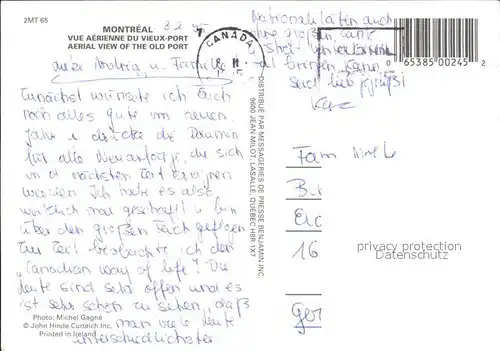 2MT 65
MONTRÉAL
VUE AÉRIENNE DU VIEUX-PORT
AERIAL VIEW OF THE OLD PORT
Zunächst wünsche ich Euch
noch alles gute im neuen
Jahr u drücke die Daumen
für alle Neuanfänge, die sich
in d nächsten Zeit ereignen
werden Ich habe es also
wirklich mal geschafft u bin
über den großen Teich geflogen
Zur Zeit beobachte ich den
"Canadian way of life". Die
Leute sind sehr offen und es
ist sehr schön zu sehen, daß
man viele Leute
unterschiedlichster
Photo: Michel Gagné
© John Hinde Curteich Inc.
Printed in Ireland
Nationalitäten auch
DISTRIBUÉ PAR MESSAGERIES DE PRESSE BENJAMIN INC.
9600 JEAN MILOT, LASALLE, QUÉBEC H8R 1X7
CANADA
0 65385 00245 2
Fam
16
privacy protection
Datenschutz
Ger